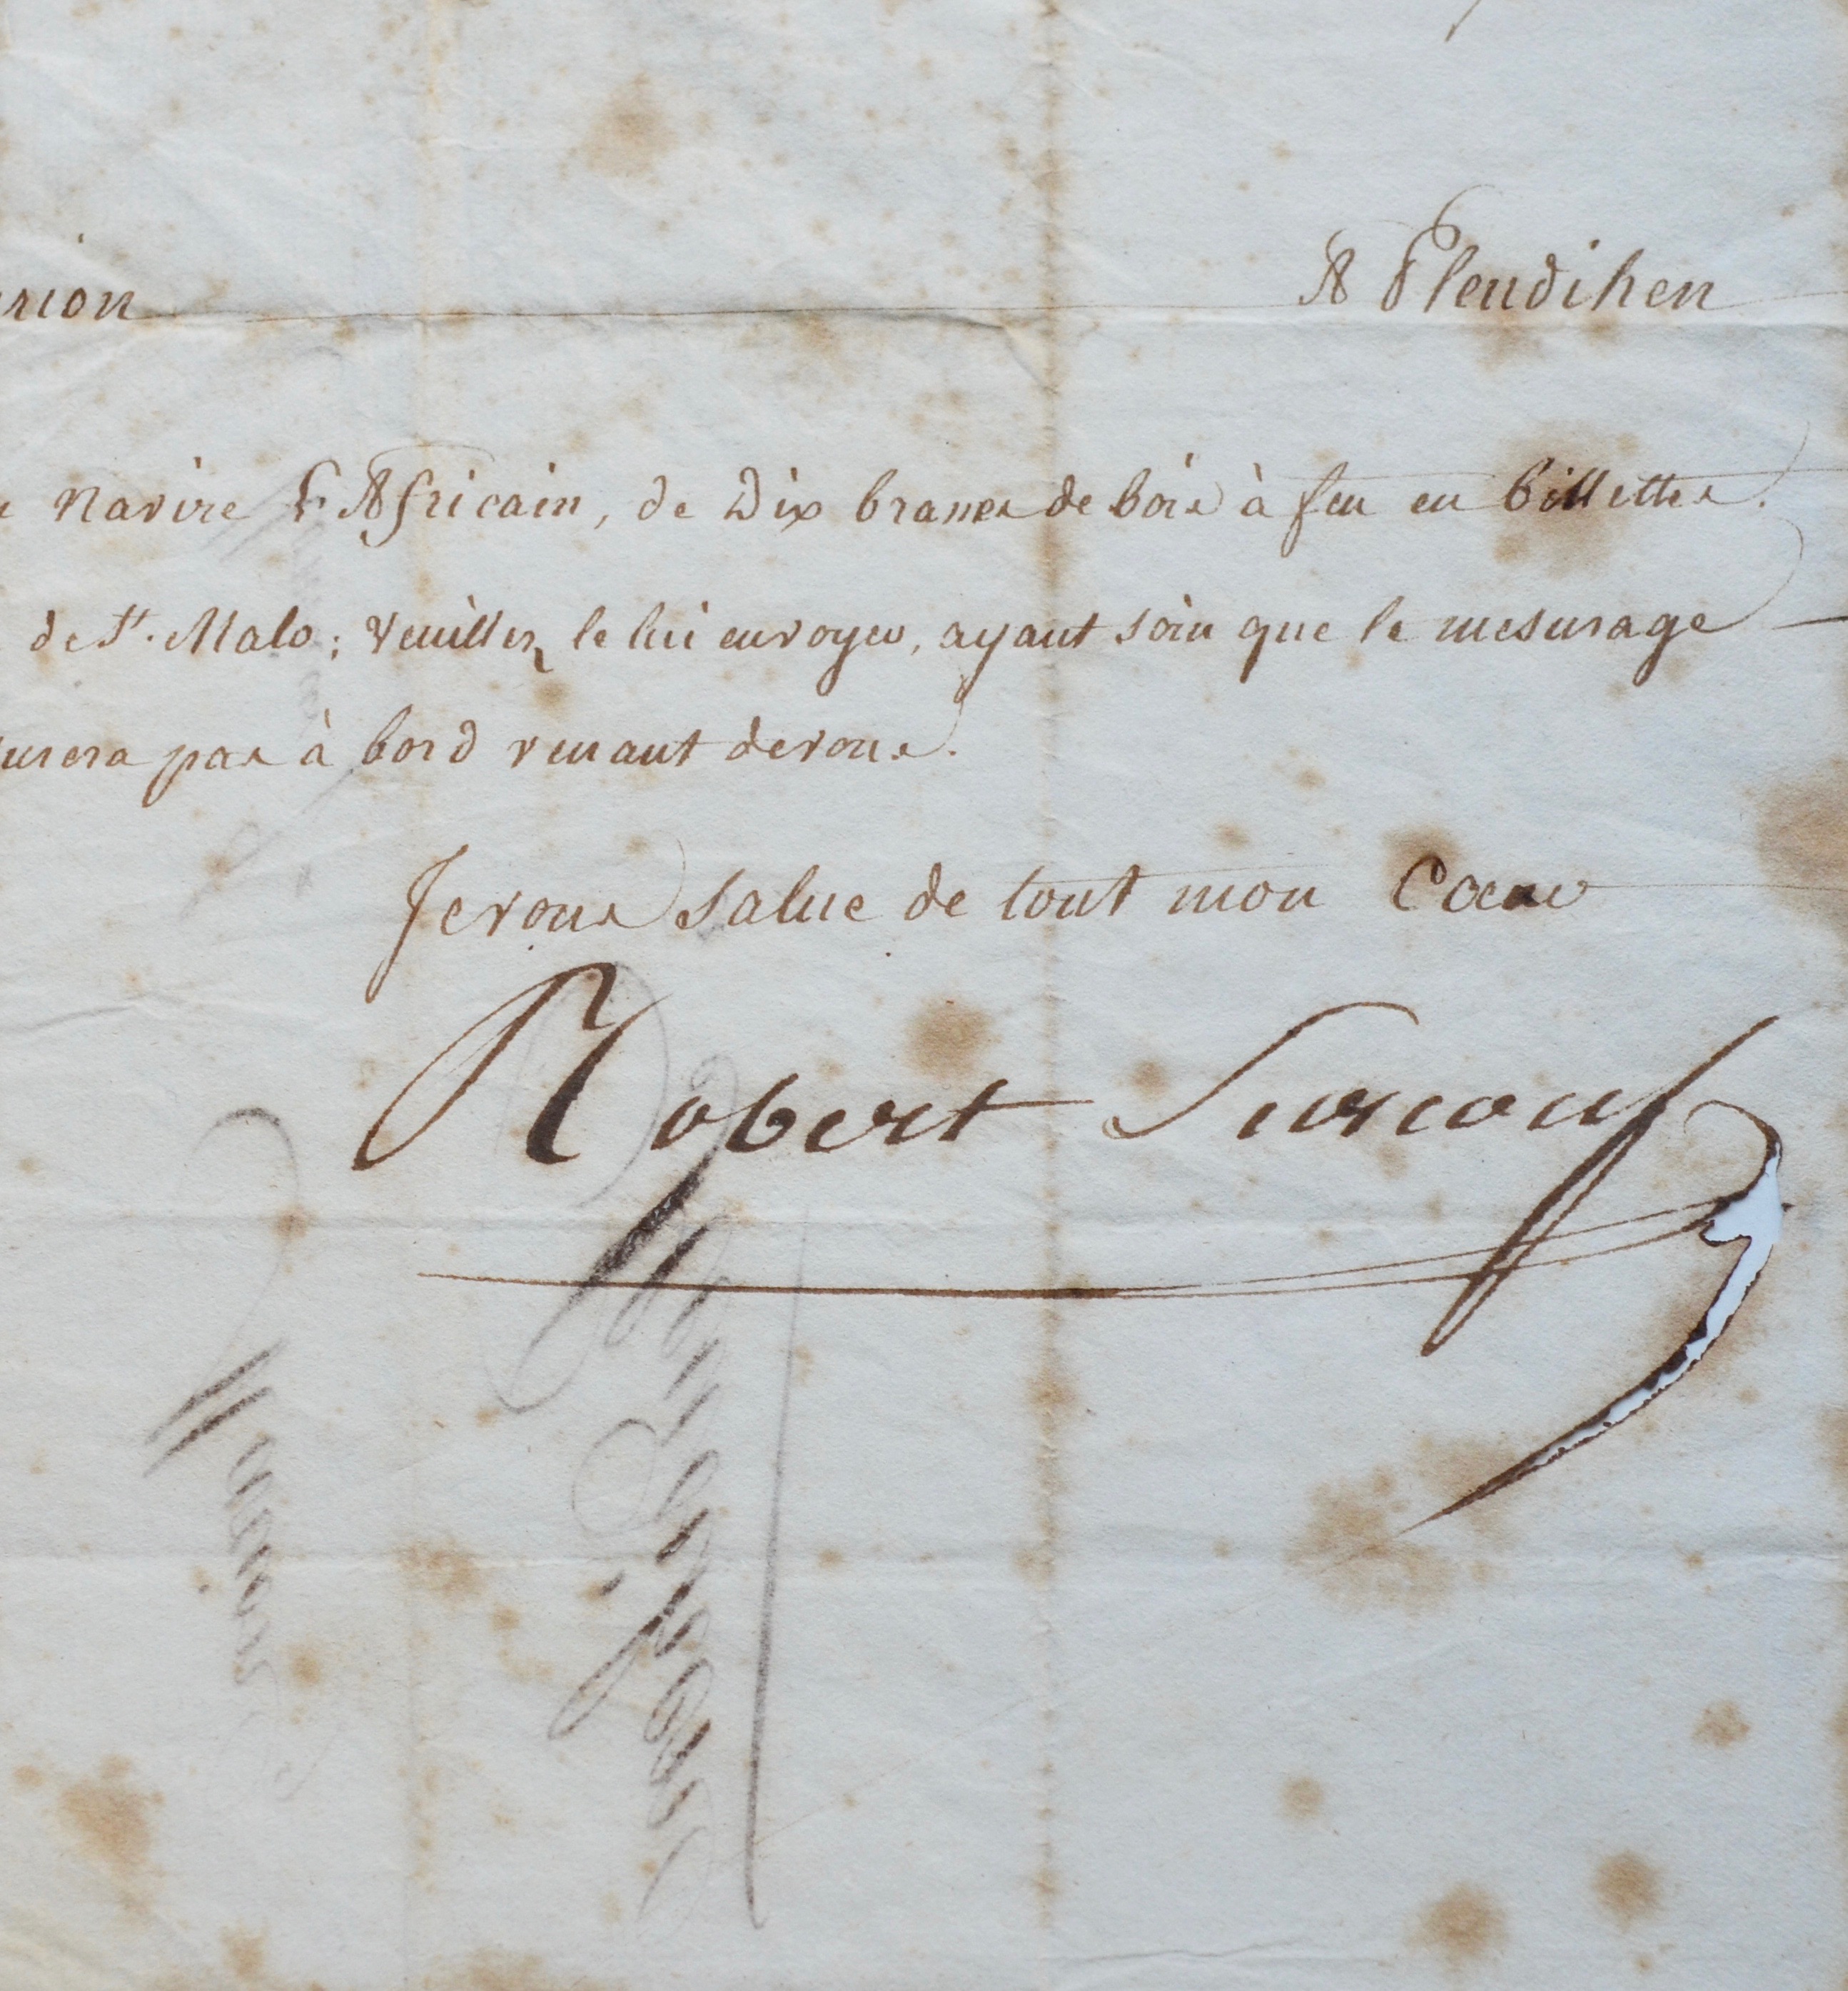 rion A Pleudihen
Navire L'Africain, de Dix brasses de bois à feu en billettes.
de St. Malo; veuillez le lui envoyer, ayant soin que le mesurage
urera pas à bord venant de vous.
Je vous salue de tout mon Coeur
Robert Surcouf